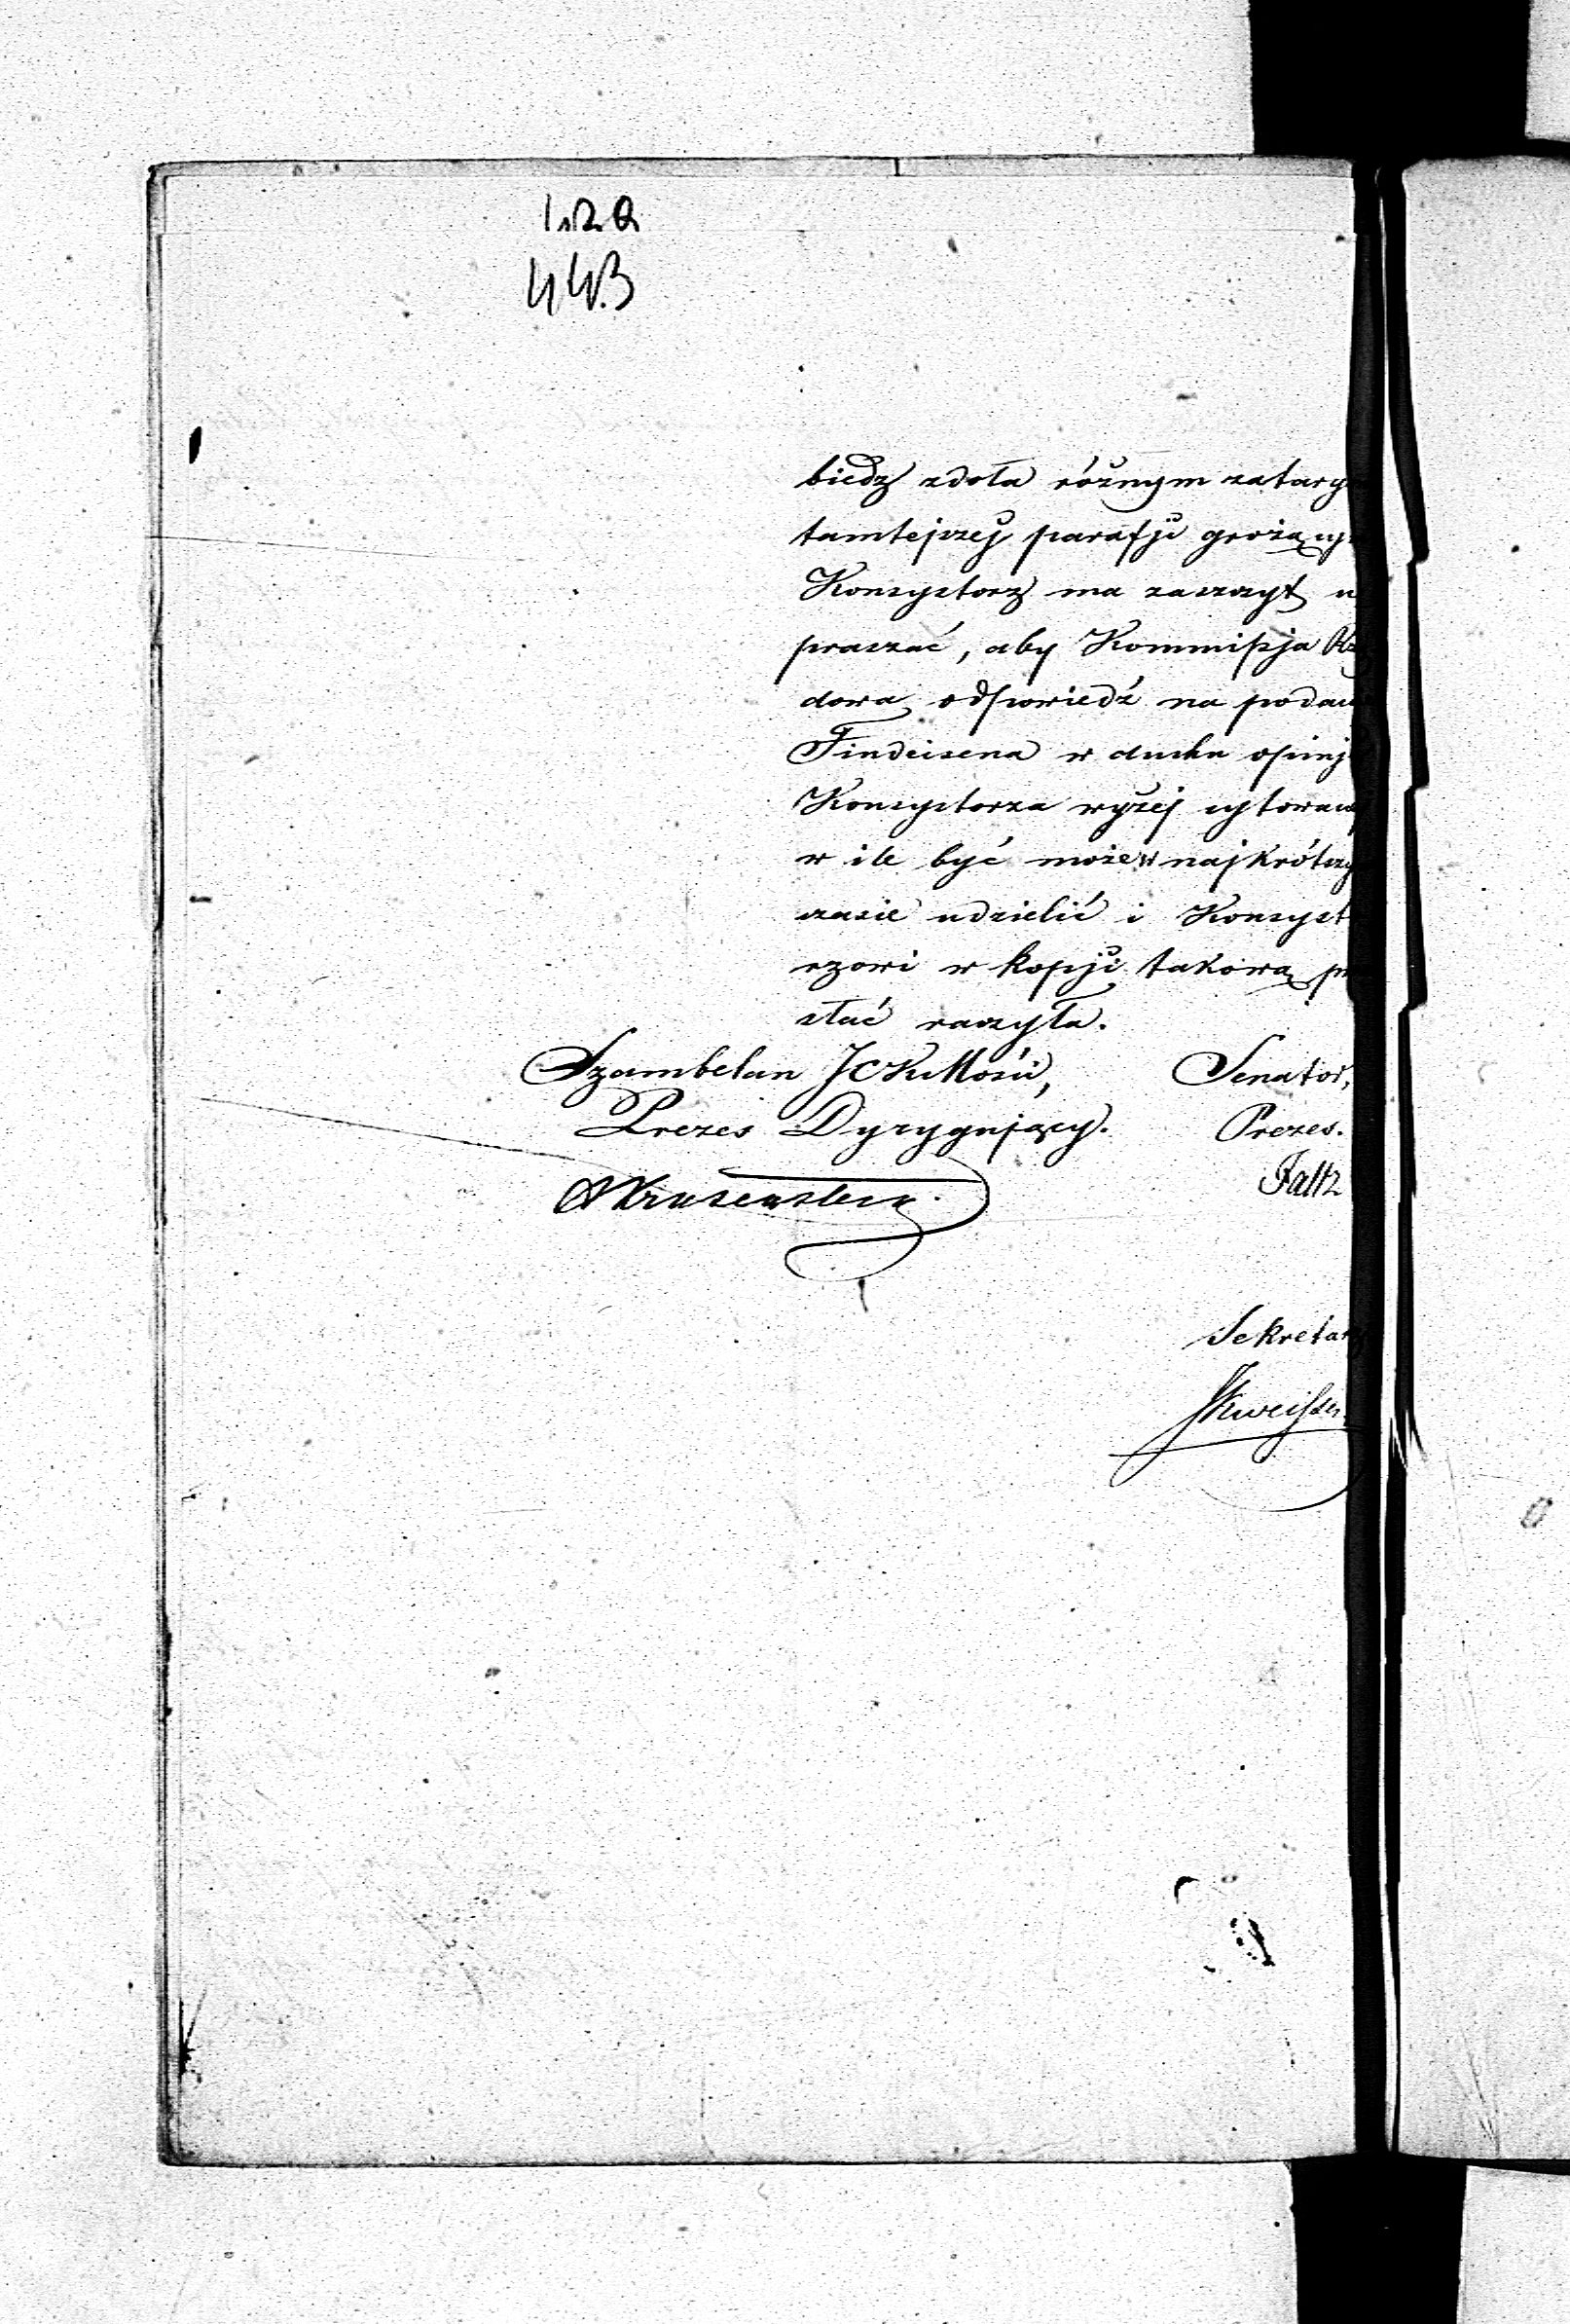 443
biedz zdoła różnym zatarg
tamtejszej parafji grożący
Konsystorz ma zaszczyt u
praszać, aby Kommissja Rz
dowa odpowiedź na podan
Findeisena w duchu opinj
Konsystorza wyżej cytowan
w ile być może w najkrótszy
czasie udzielić i Konsyst
rzowi w kopji takową pr
słać raczyła.
Szambelan JCKMości, Senator,
Prezes Dyrygujący. Prezes.
AKrusenstern. Faltz
Sekretarz